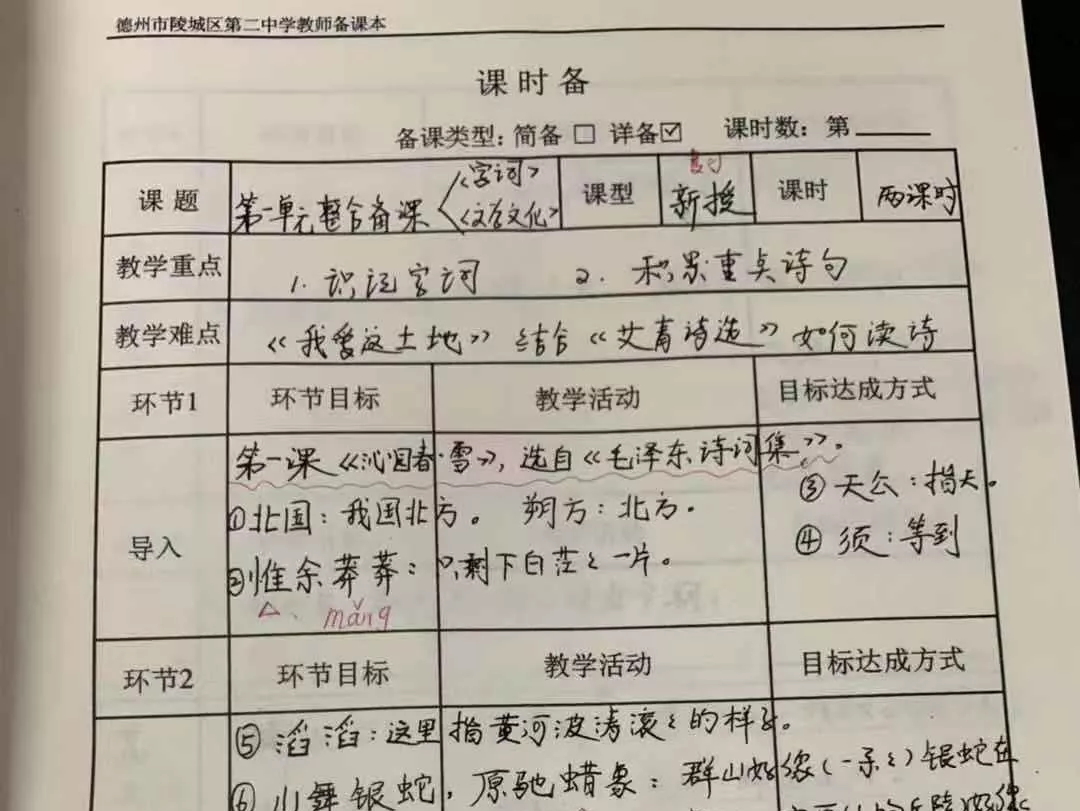 德州市陵城区第二中学教师备课本
课时备
备课类型: 简备 □ 详备☑ 课时数: 第
课题 第一单元整合备课 <字词> <文学文化> 课型 复习 新授 课时 两课时
教学重点 1. 识记字词 2. 积累重点诗句
教学难点 《我爱这土地》结合《艾青诗选》如何读诗
环节1 环节目标 教学活动 目标达成方式
导入
第一课《沁园春·雪》, 选自《毛泽东诗词集》。
①北国: 我国北方。 朔方: 北方.
②惟余莽莽: 只剩下白茫々一片。
mǎng
③ 天公: 指天。
④ 须: 等到
环节2 环节目标 教学活动 目标达成方式
⑤ 滔滔: 这里指黄河波涛滚々的样子。
⑥ 山舞银蛇, 原驰蜡象: 群山好像(一条々)银蛇在